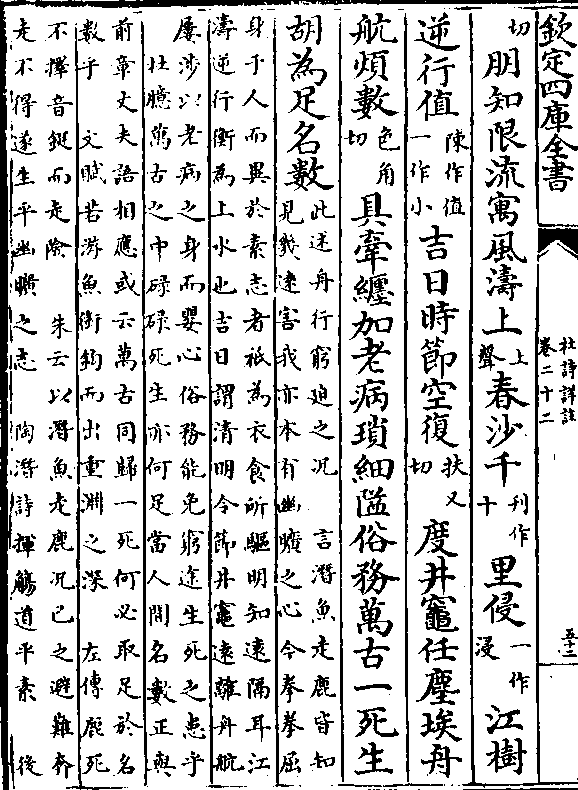 欽定四庫全書
杜詩詳註
卷二十二
五十二
切朋知限流寓風濤上上聲春沙千刊作十里侵一作浸江樹
逆行值陳作值一作小吉日時節空復扶又切度井竈任塵埃舟
航煩數色角切具牽纏加老病瑣細隘俗務萬古一死生
胡為足名數此述舟行窮迫之况 言潛魚走鹿皆知
見幾遠害我亦本有幽曠之心今拳拳屈
身于人而異於素志者祗為衣食所驅明知遠隔耳江
濤逆行衡為上水也吉日謂清明令節井竈遠離舟航
屢涉以老病之身而嬰心俗務能免窮途生死之患乎
杜臆萬古之中碌碌死生亦何足當人間名數正與
前章丈夫語相應或云萬古同歸一死何必取足於名
數乎 文賦若游魚銜鈎而出重淵之深 左傳鹿死
不擇音鋌而走險 朱云以潛魚走鹿况己之避難奔
走不得遂生平幽曠之志 陶潛詩揮觴道平素 後